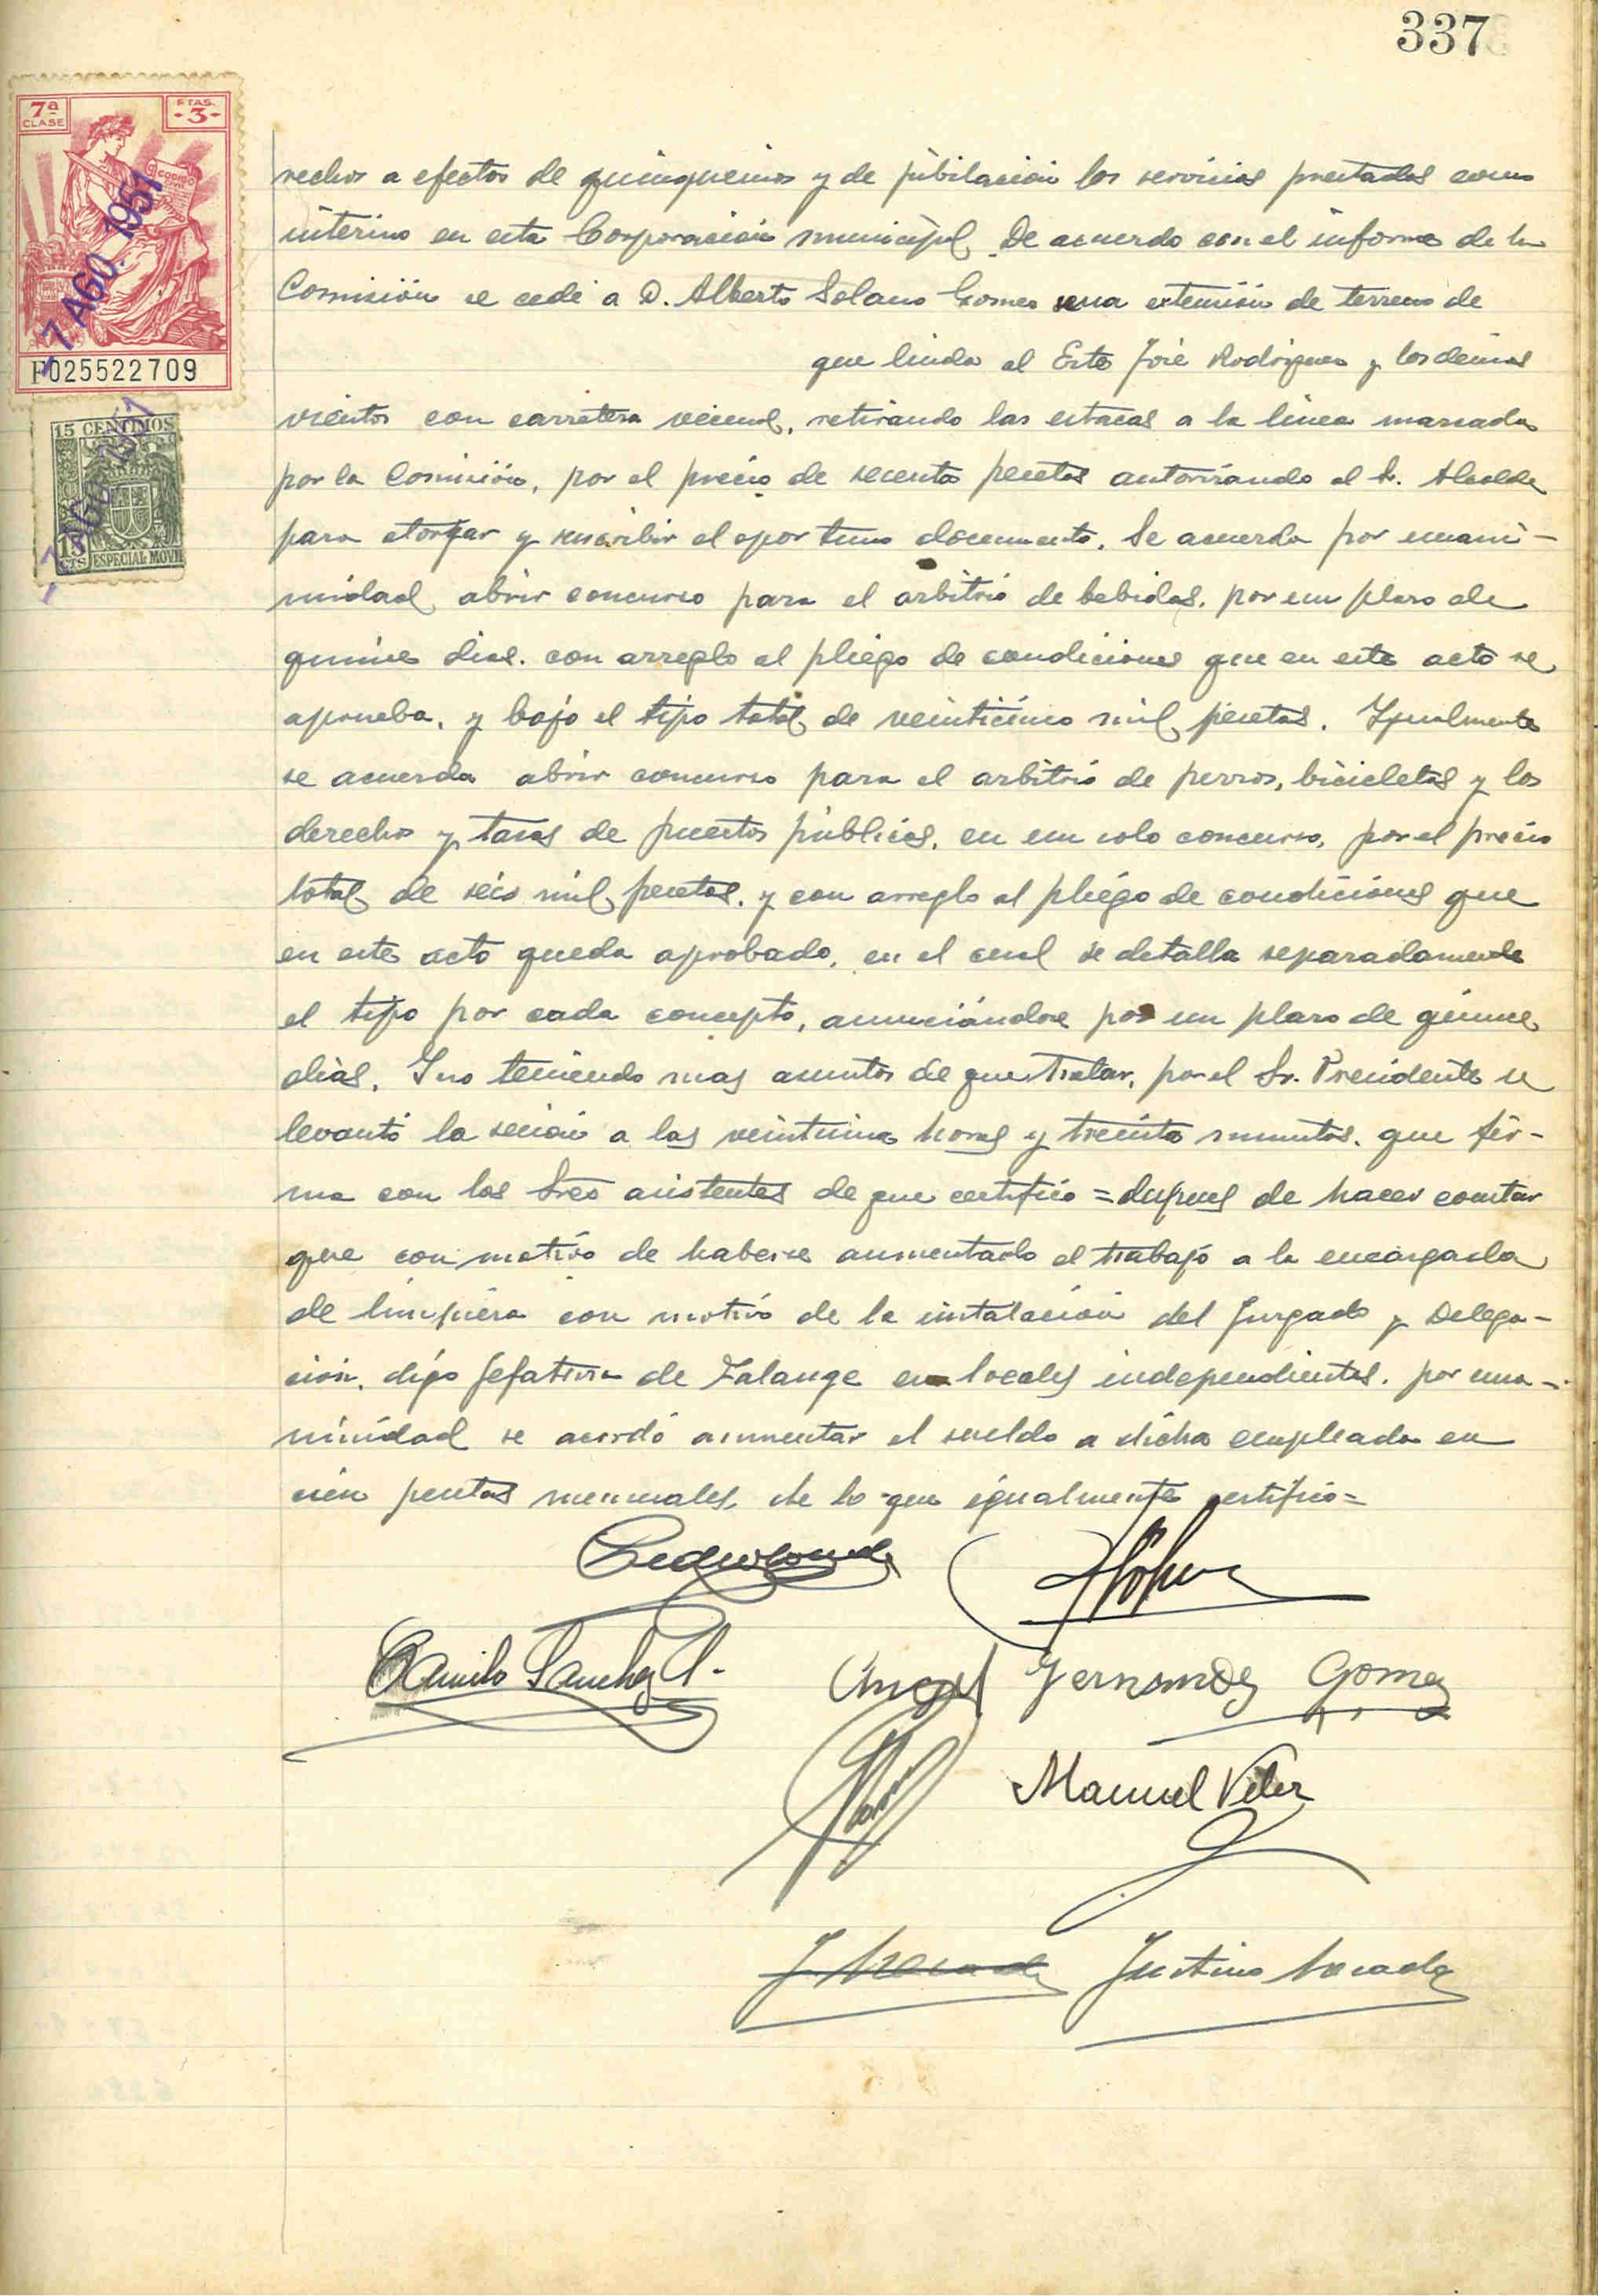 337
7ª
CLASE
PTAS.
-3-
CODIGO
CIVIL
-7 AGO. 1951
F025522709
15 CENTIMOS
-7 AGO. 1951
15
CTS
ESPECIAL MOVIL
rechos a efectos de quinquenios y de jubilación los servicios prestados como
interino en esta Corporación municipal. De acuerdo con el informe de la
Comisión se cede a D. Alberto Solano Gomes una extensión de terreno de
que linda al Este José Rodriguez y los demas
vientos con carretera vecinal, retirando las estacas a la linea marcada
por la Comisión, por el precio de pesetas autorizando al Sr. Alcalde
para otorgar y suscribir el oportuno documento. Se acuerda por unani-
midad abrir concurso para el arbitrio de bebidas, por un plazo de
quince dias. con arreglo al pliego de condiciones que en este acto se
aprueba, y bajo el tipo total de veinticinco mil pesetas. Igualmente
se acuerda abrir concurso para el arbitrio de perros, bicicletas y los
derechos y tasas de puestos públicos, en un solo concurso, por el precio
total de seis mil pesetas. y con arreglo al pliego de condiciones que
en este acto queda aprobado, en el cual se detalla separadamente
el tipo por cada concepto, anunciándose por un plazo de quince
dias. Y no teniendo mas asuntos de que tratar, por el Sr. Presidente se
levantó la sesión a las veintiuna horas y treinta minutos. que fir-
ma con los Sres asistentes de que certifico = despues de hacer constar
que con motivo de haberse aumentado el trabajo a la encargada
de limpieza con motivo de la instalación del Juzgado y Delega-
ción, digo Jefatura de Falange en locales independientes. por una-
nimidad se acordó aumentar el sueldo a dicha empleada en
cien pesetas mensuales, de lo que igualmente certifico=
Camilo Sanchez
Angel Fernandez Gomez
Manuel Velez
Justino Losada